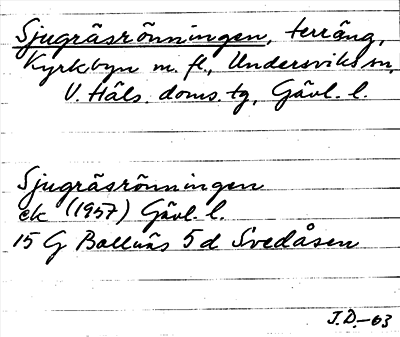 Sjugräsrönningen, terräng,
Kyrkbyn m. fl., Undersviks sn,
V. Häls. doms. tg, Gävl. l.
Sjugräsrönningen
ek (1957) Gävl. l.
15 G Bollnäs 5d Svedåsen
J.D.-63